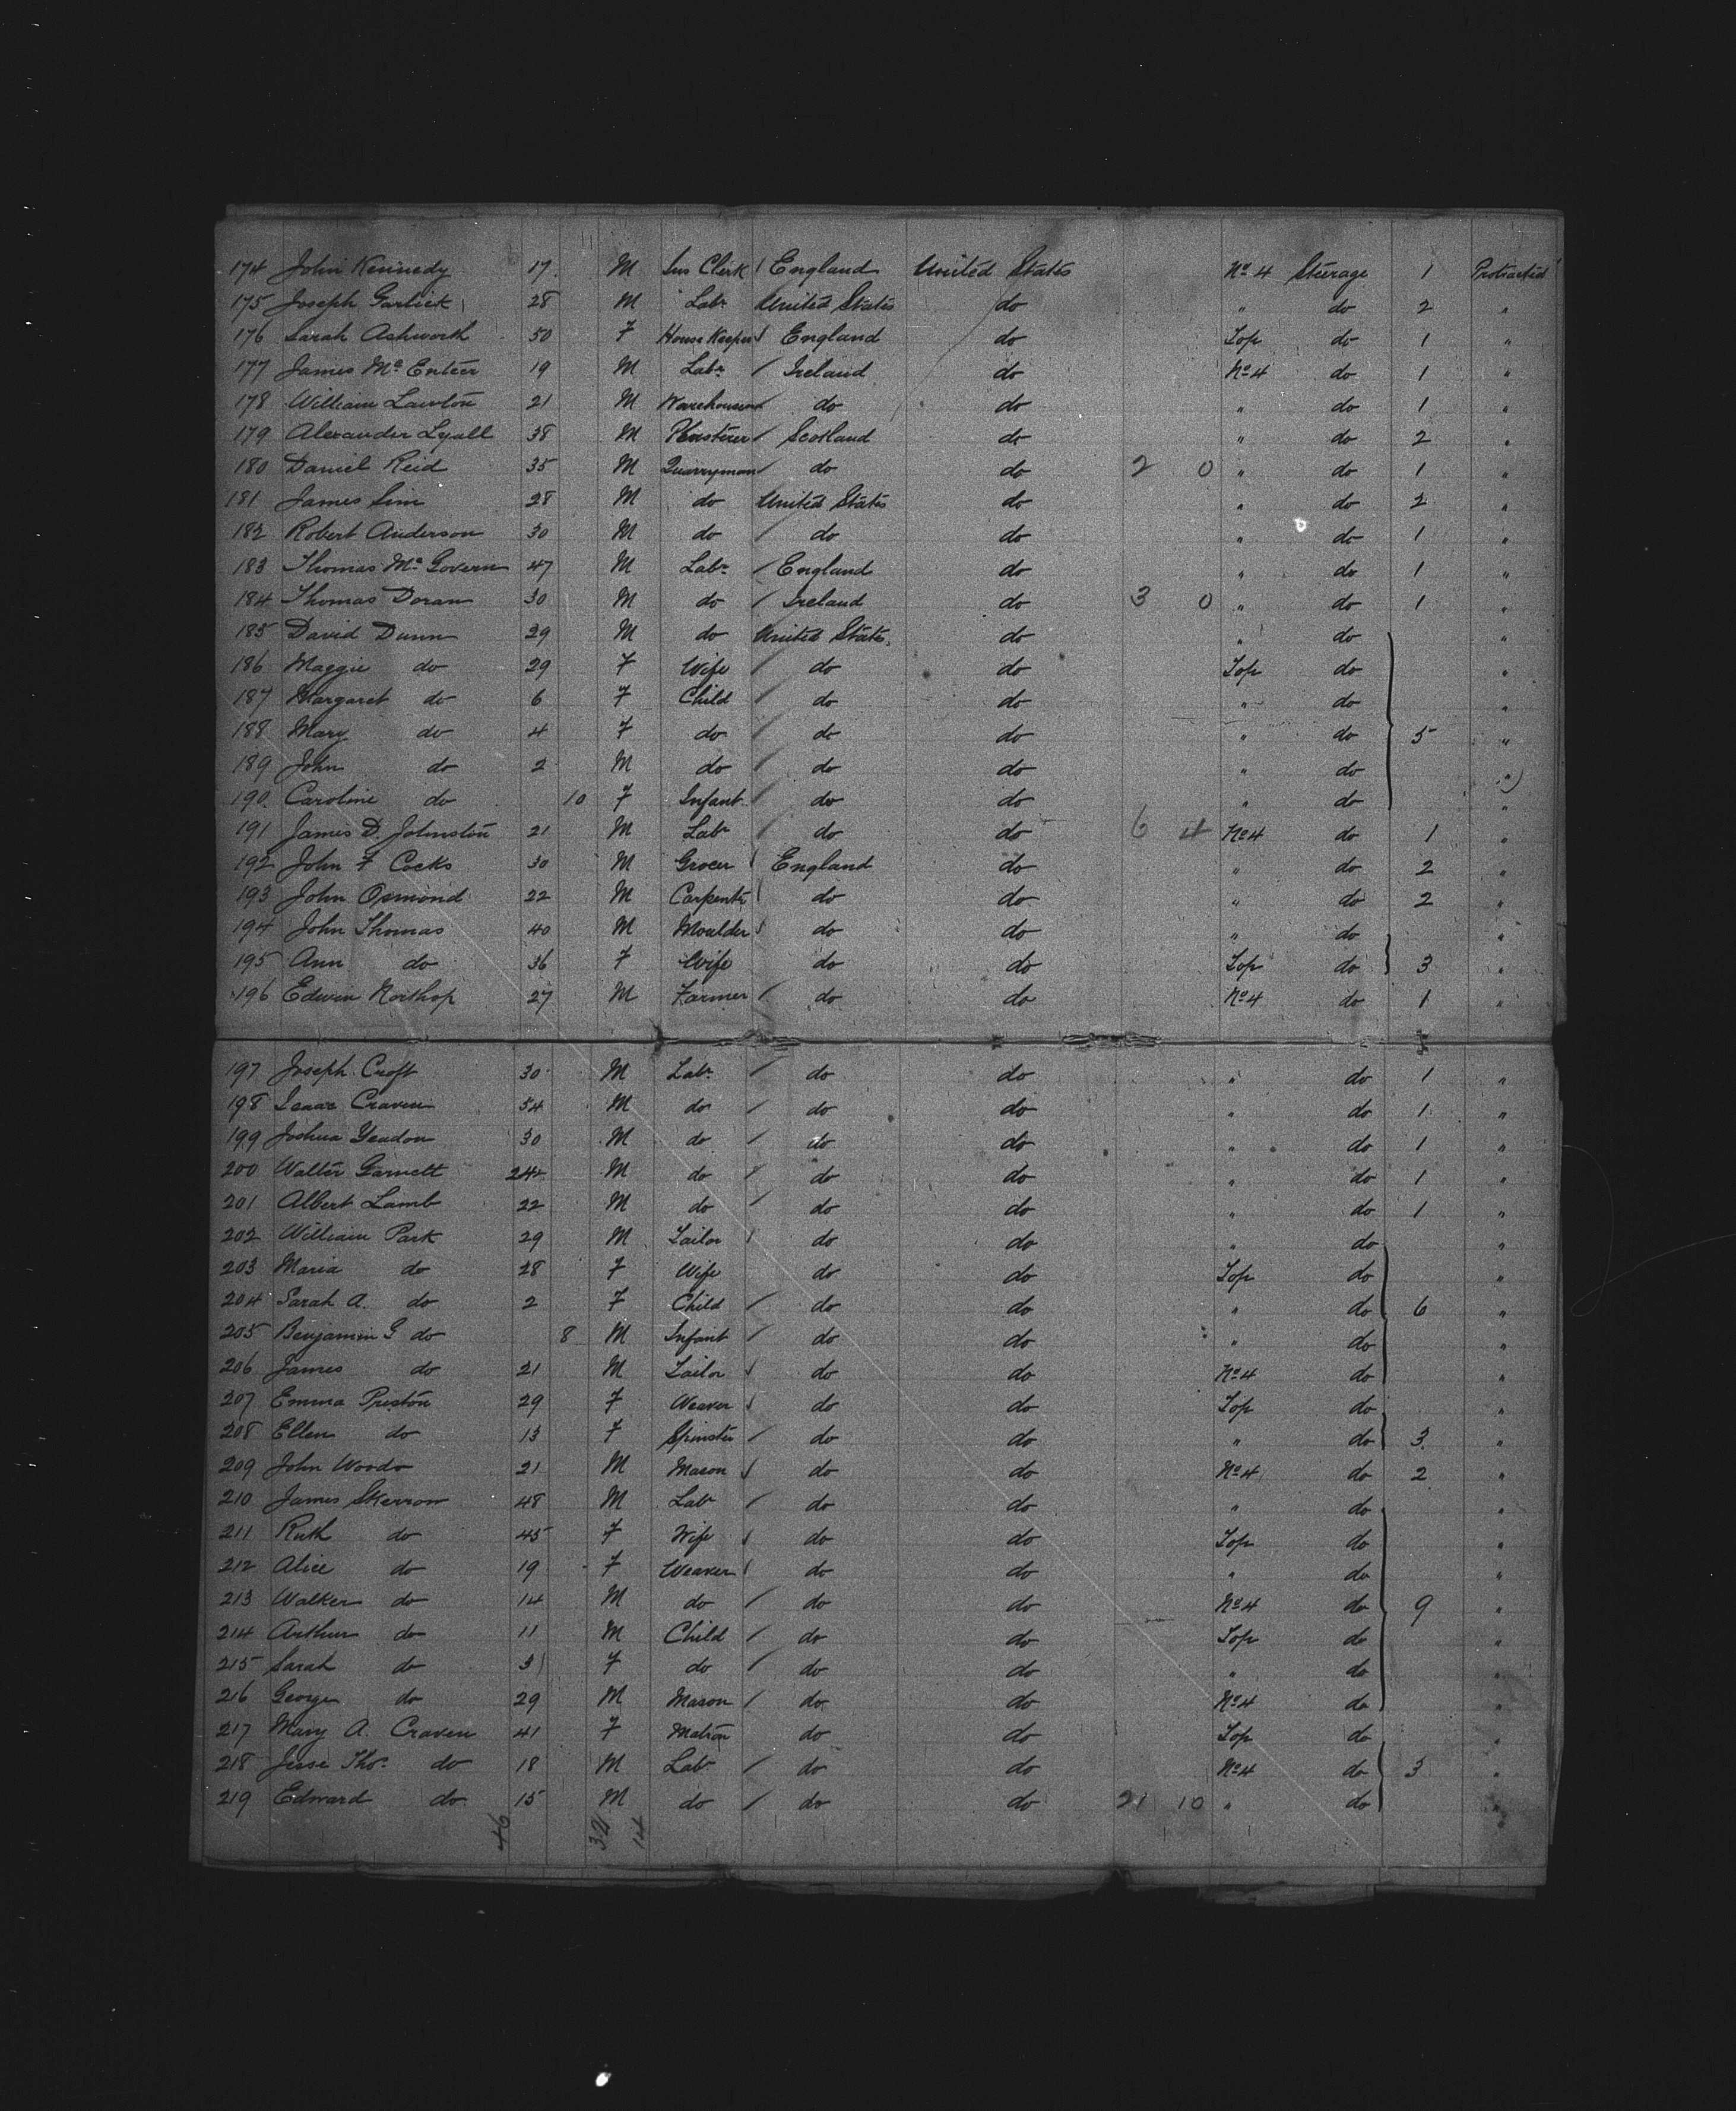 174 John Kennedy 17 M Ins Clerk England United States No 4 Steerage 1 Protracted
175 Joseph Garlick 28 M Labr United States do " do 2 "
176 Sarah Ashworth 50 F House Keeper England do Top do 1 "
177 James Mc Enteer 19 M Labr Ireland do No 4 do 1 "
178 William Lawton 21 M Warehouseman do do " do 1 "
179 Alexander Lyall 38 M Plasterer Scotland do " do 2 "
180 Daniel Reid 35 M Quarryman do do 2 0 " do 1 "
181 James Sim 28 M do United States do " do 2 "
182 Robert Anderson 30 M do do do " do 1 "
183 Thomas Mc Govern 47 M Labr England do " do 1 "
184 Thomas Doran 30 M do Ireland do 3 0 " do 1 "
185 David Dunn 29 M do United States do " do "
186 Maggie do 29 F Wife do do Top do "
187 Margaret do 6 F Child do do " do "
188 Mary do 4 F do do do " do 5 "
189 John do 2 M do do do " do "
190 Caroline do 10 F Infant do do " do "
191 James D. Johnston 21 M Labr do do 6 4 No 4 do 1 "
192 John F Cocks 30 M Grocer England do " do 2 "
193 John Osmond 22 M Carpenter do do " do 2 "
194 John Thomas 40 M Moulder do do " do "
195 Ann do 36 F Wife do do Top do 3 "
196 Edwin Northop 27 M Farmer do do No 4 do 1 "
197 Joseph Croft 30 M Labr do do " do 1 "
198 Isaac Craven 54 M do do do " do 1 "
199 Joshua Yeadon 30 M do do do " do 1 "
200 Walter Garnett 24 M do do do " do 1 "
201 Albert Lamb 22 M do do do " do 1 "
202 William Park 29 M Tailor do do " do "
203 Maria do 28 F Wife do do Top do "
204 Sarah A. do 2 F Child do do " do 6 "
205 Benjamin G do 8 M Infant do do " do "
206 James do 21 M Tailor do do No 4 do "
207 Emma Preston 29 F Weaver do do Top do "
208 Ellen do 13 F Spinster do do " do 3 "
209 John Woods 21 M Mason do do No 4 do 2 "
210 James Skerrow 48 M Labr do do " do "
211 Ruth do 45 F Wife do do Top do "
212 Alice do 19 F Weaver do do " do "
213 Walker do 14 M do do do No 4 do 9 "
214 Arthur do 11 M Child do do Top do "
215 Sarah do 3 F do do do " do "
216 George do 29 M Mason do do No 4 do "
217 Mary A. Craven 41 F Matron do do Top do "
218 Jesse Thos. do 18 M Labr do do No 4 do 3 "
219 Edward do 15 M do do do 21 10 " do "
46 32 14